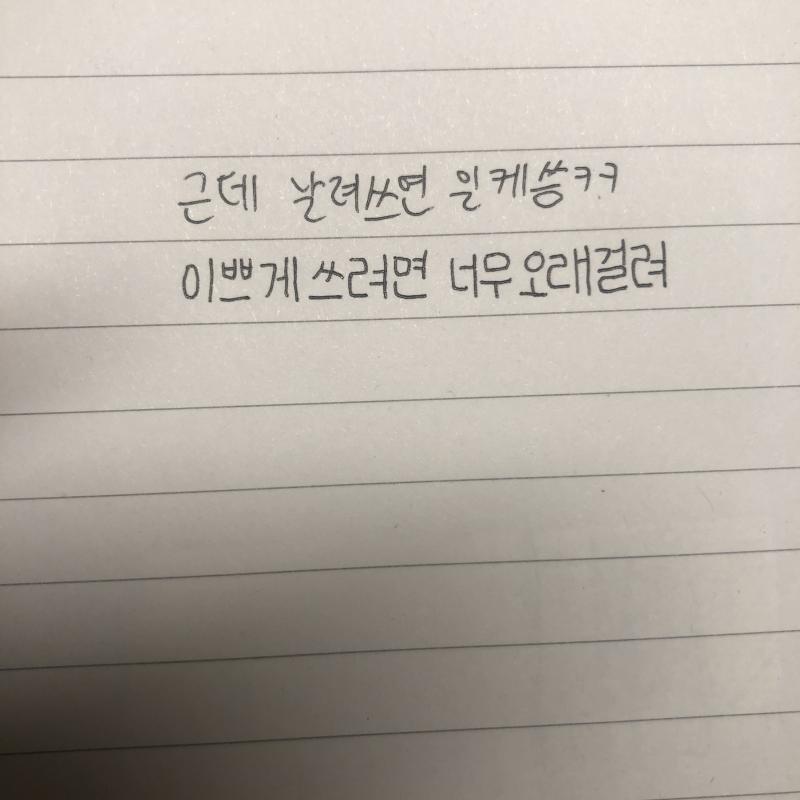 근데 날려쓰면 일케씅ㅋㅋ
이쁘게 쓰려면 너무오래걸려